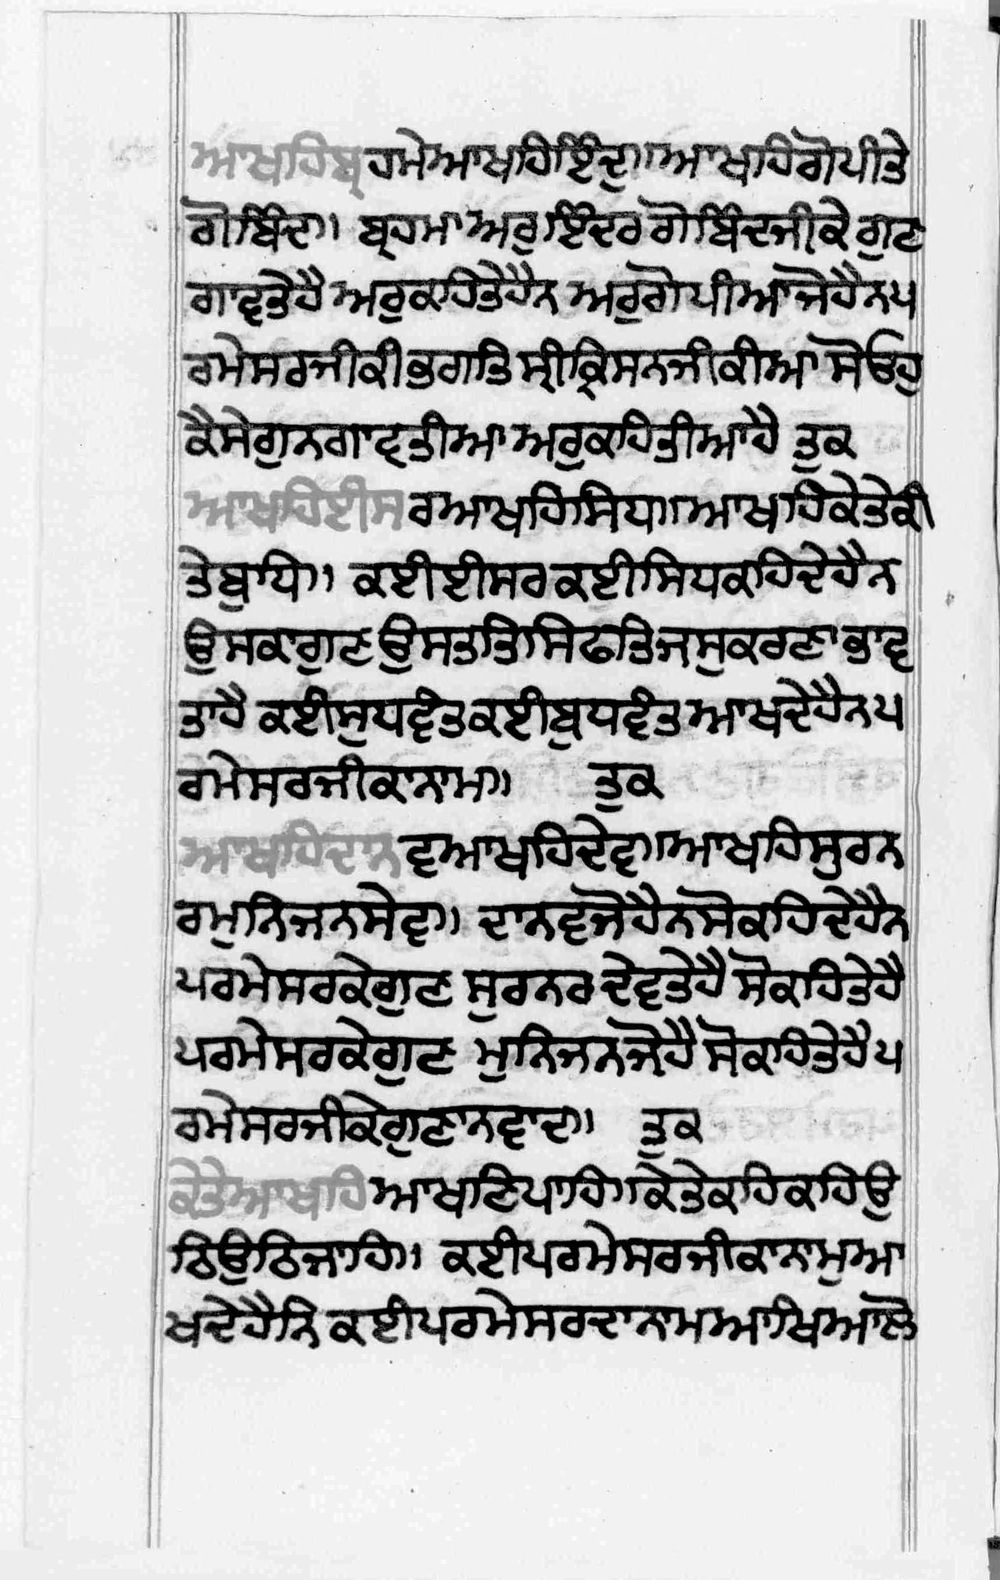 ਆਖਹਿਬ੍ਰਹਮੇਆਖਹਿਇੰਦ੍ਰ॥ਆਖਹਿਗੋਪੀਤੇ
ਗੋਬਿੰਦ॥ ਬ੍ਰਹਮਾਅਰੁਇੰਦਰਗੋਬਿੰਦਜੀਕੇਗੁਣ
ਗਾਵ੍ਤੇਹੈਅਰੁਕਹਿਤੇਹੈਨਅਰੁਗੋਪੀਆਜੋਹੈਨਪ
ਰਮੇਸਰਜੀਕੀਭਗਤਿਸ੍ਰੀਕ੍ਰਿਸਨਜੀਕੀਆਸੋਓਹੁ
ਕੈਸੇਗੁਨਗਾਵ੍ਤੀਆਅਰੁਕਹਿਤੀਆਹੈ ਤੁਕ
ਆਖਹਿਈਸਰਆਖਹਿਸਿਧ॥ਆਖਹਿਕੇਤੇਕੀ
ਤੇਬੁਧਿ॥ ਕਈਈਸਰਕਈਸਿਧਕਹਿਦੇਹੈਨ
ਉਸਕਾਗੁਣਉਸਤਤਿਸਿਫਤਿਜਸੁਕਰਣਾਭਾਵ
ਤਾਹੈਕਈਸੁਧਵੰਤਕਈਬੁਧਵੰਤਆਖਦੇਹੈਨਪ
ਰਮੇਸਰਜੀਕਾਨਾਮ॥ ਤੁਕ
ਆਖਹਿਦਾਨਵਆਖਹਿਦੇਵ॥ਆਖਹਿਸੁਰਨ
ਰਮੁਨਿਜਨਸੇਵ॥ ਦਾਨਵਜੋਹੈਨਸੋਕਹਿਦੇਹੈਨ
ਪਰਮੇਸਰਕੇਗੁਣ ਸੁਰਨਰਦੇਵਤੇਹੈਸੋਕਹਿਤੇਹੈ
ਪਰਮੇਸਰਕੇਗੁਣ ਮੁਨਿਜਨਜੋਹੈਸੋਕਹਿਤੇਹੈਪ
ਰਮੇਸਰਜੀਕੇਗੁਣਾਨਵਾਦ॥ ਤੁਕ
ਕੇਤੇਆਖਹਿਆਖਣਿਪਾਹਿ॥ਕੇਤੇਕਹਿਕਹਿਉ
ਠਿਉਠਿਜਾਹਿ॥ ਕਈਪਰਮੇਸਰਜੀਕਾਨਾਮੁਆ
ਖਦੇਹੈਨਿਕਈਪਰਮੇਸਰਦਾਨਾਮਆਖਿਆਲੋ